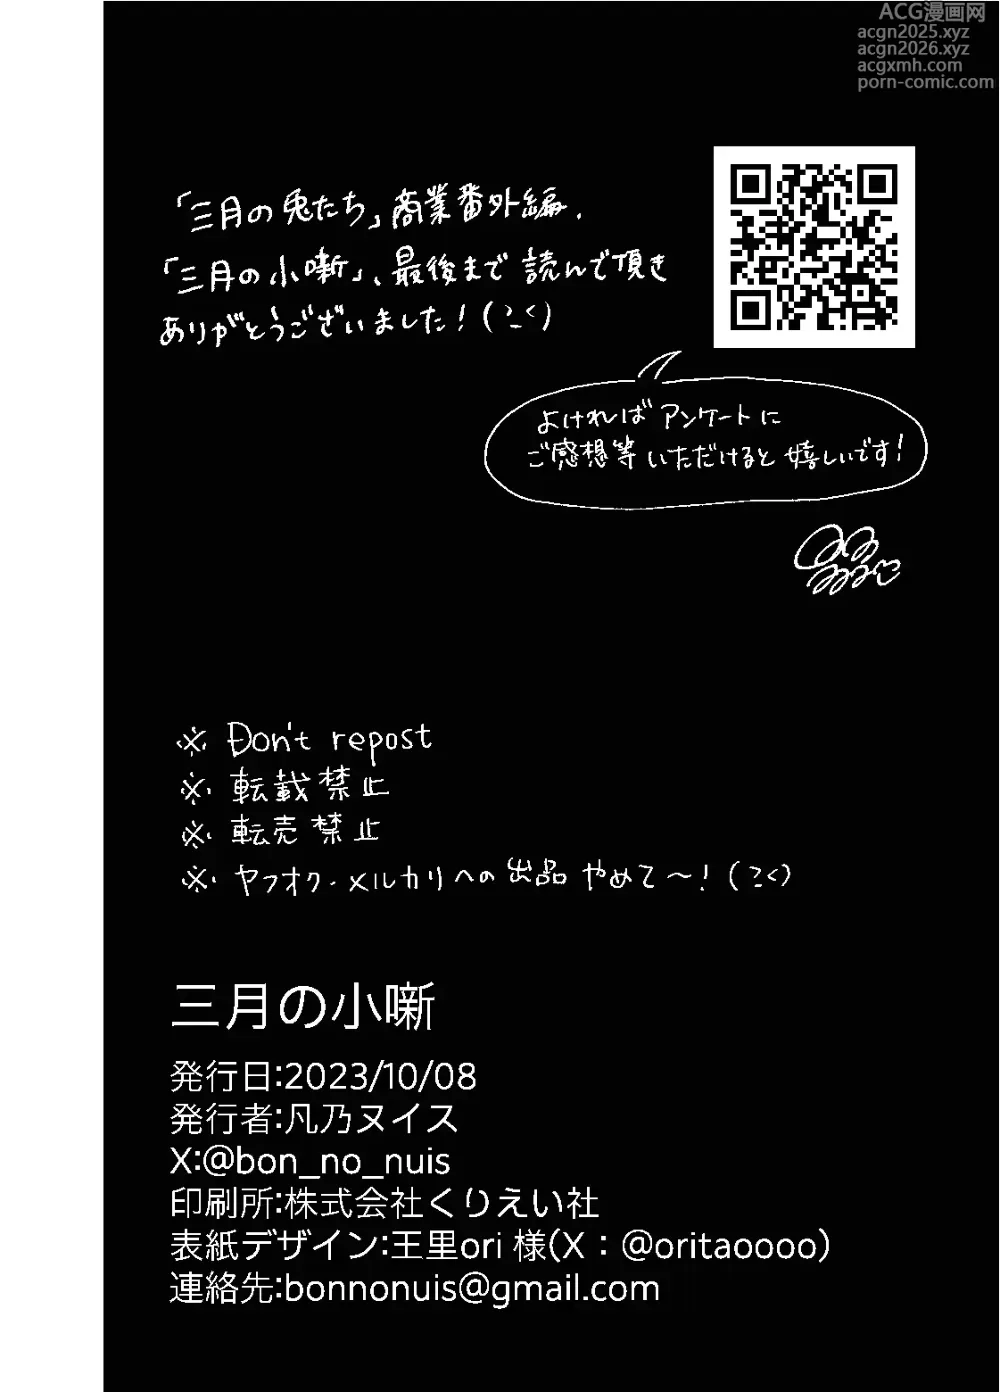 ACG漫画网
acgn2025.xyz
acgn2026.xyz
acgxmh.com
porn-comic.com
「三月の兎たち」商業番外編、
「三月の小噺」、最後まで読んで頂き
ありがとうございました!
よければアンケートに
ご感想等いただけると嬉しいです!
※ Don't repost
※ 転載禁止
※ 転売禁止
※ ヤフオク・メルカリへの出品やめて〜!
三月の小噺
発行日:2023/10/08
発行者:凡乃ヌイス
X:@bon_no_nuis
印刷所:株式会社くりえい社
表紙デザイン:王里ori 様(X:@oritaoooo)
連絡先:bonnonuis@gmail.com